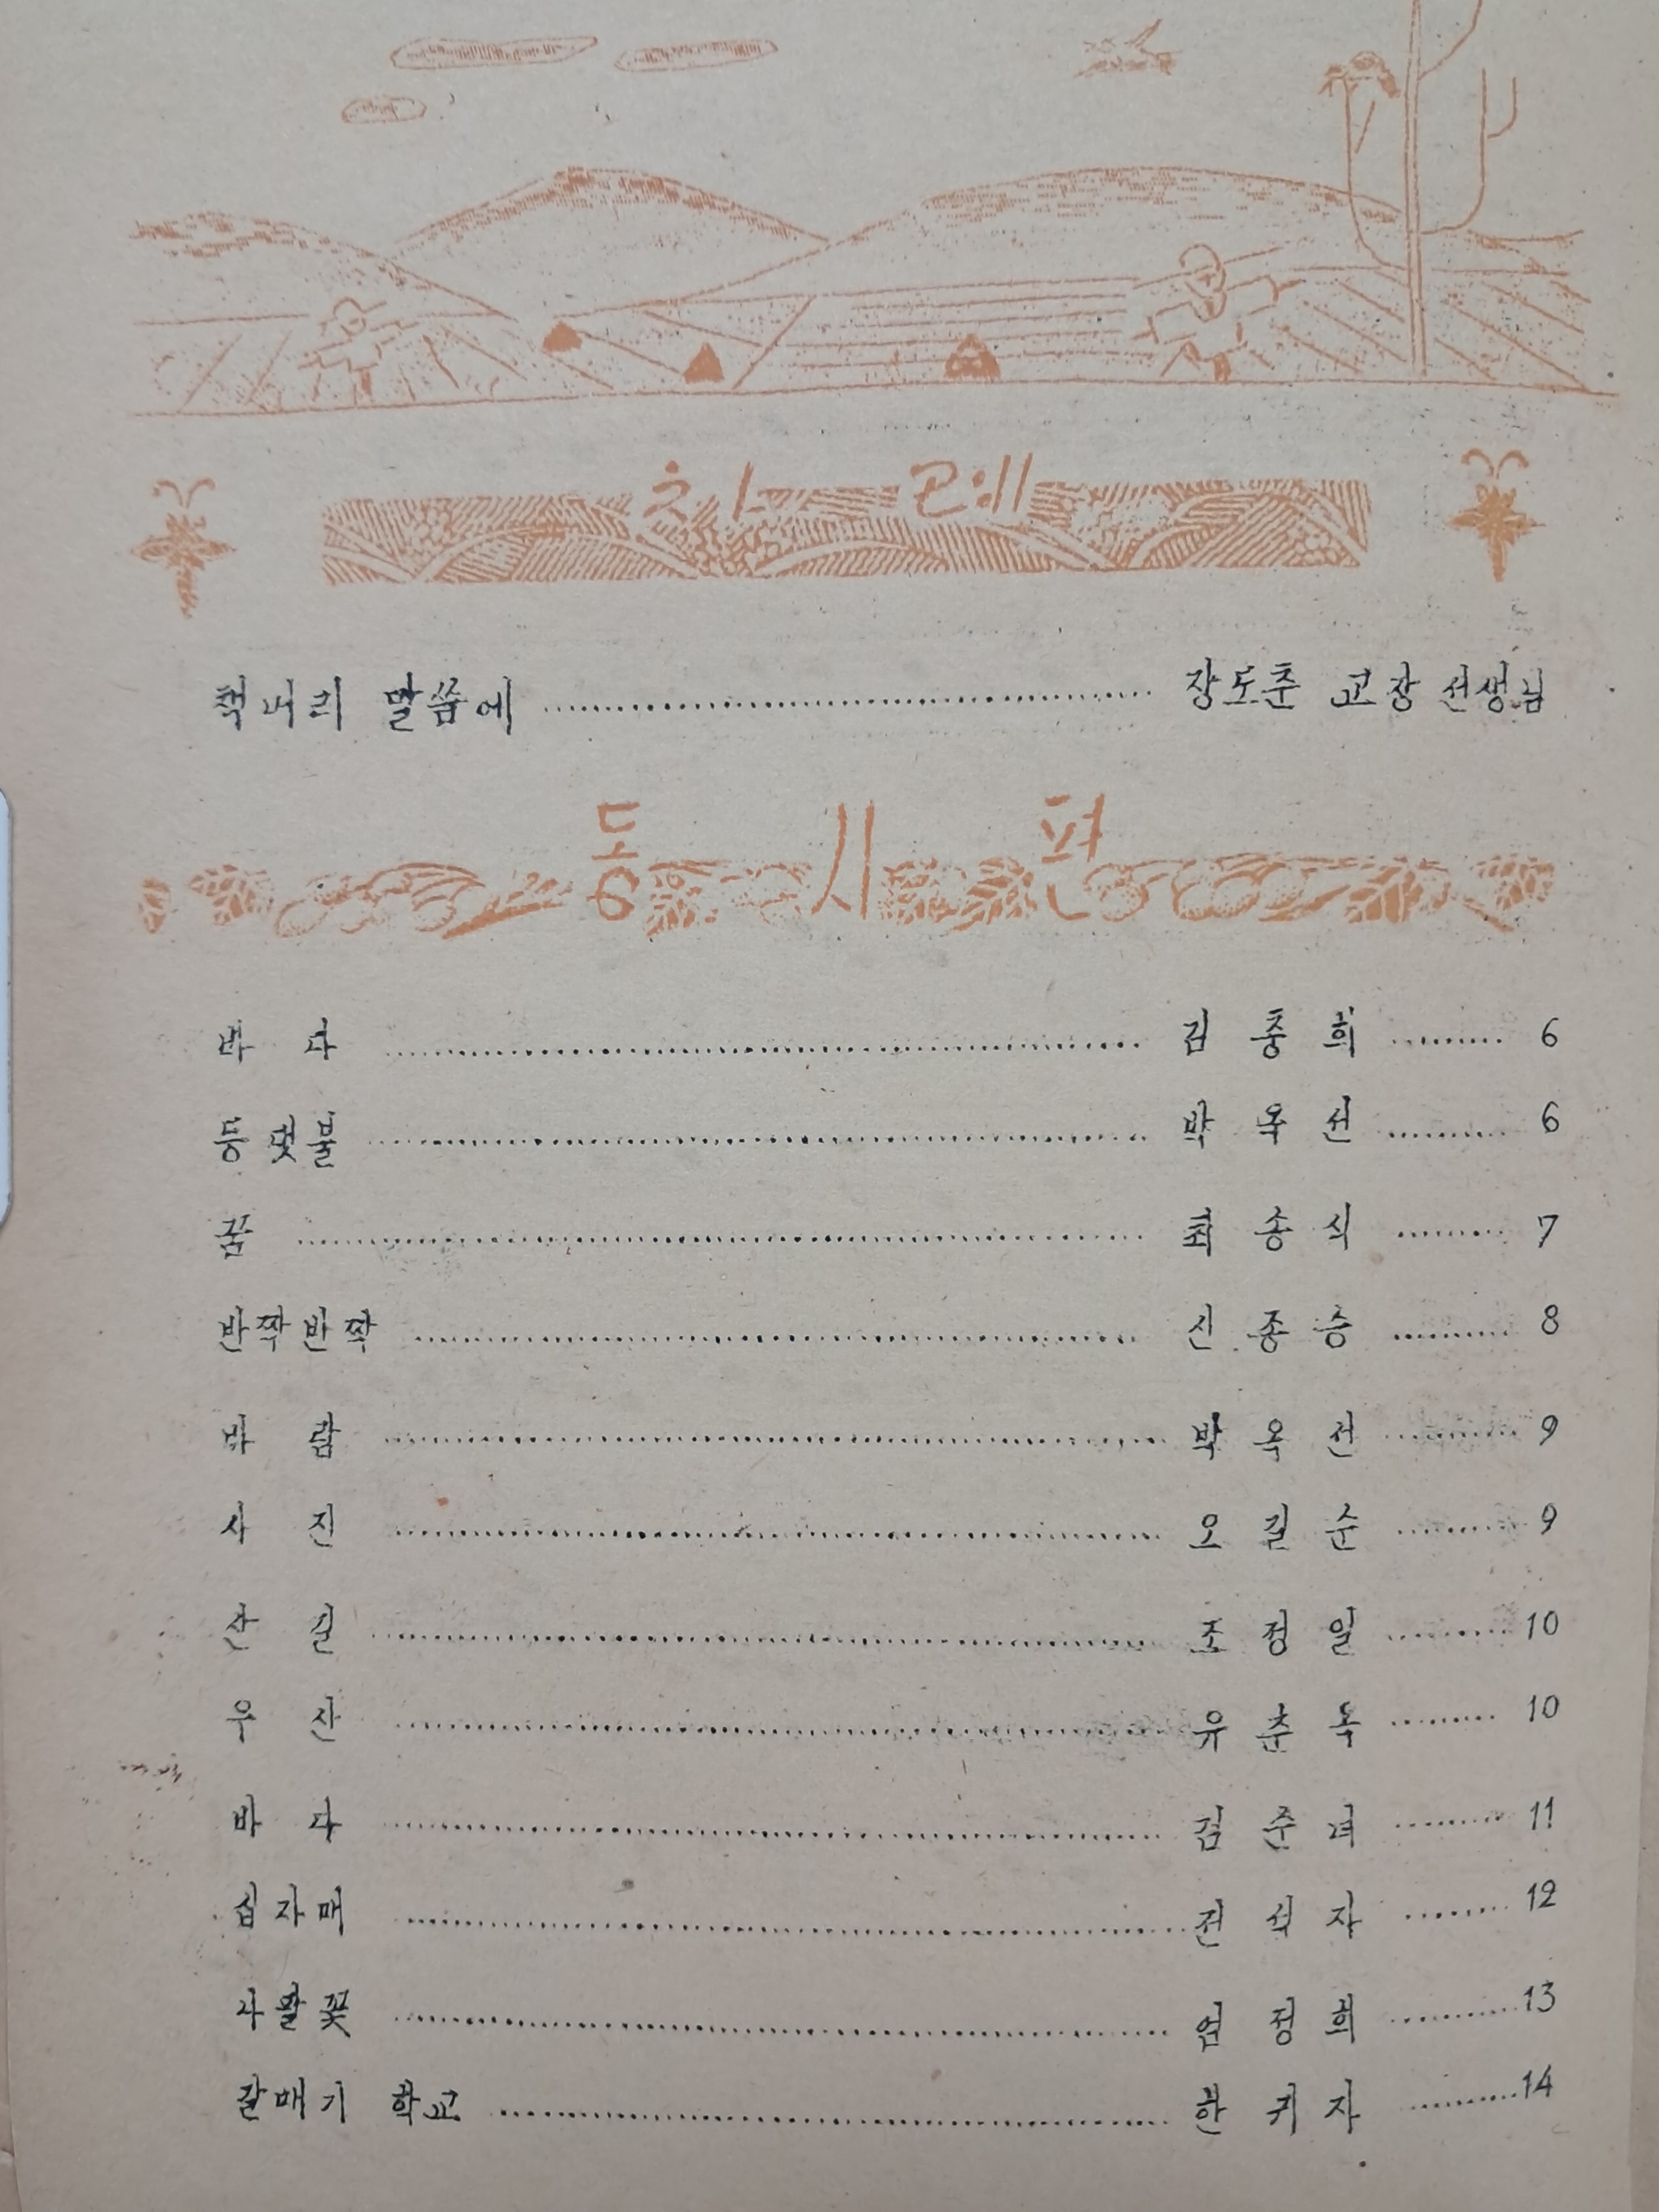 차 례
책머리 말씀에 장도춘 교장 선생님
동 시 편
바 다 김 종 희 6
등댓불 박 옥 선 6
꿈 최 종 식 7
반짝반짝 신 종 승 8
바 람 박 옥 선 9
사 진 오 길 순 9
산 길 조 정 일 10
우 산 유 춘 옥 10
바 다 김 준 녀 11
십자매 전 석 자 12
나팔꽃 엄 정 희 13
갈매기 학교 한 귀 자 14